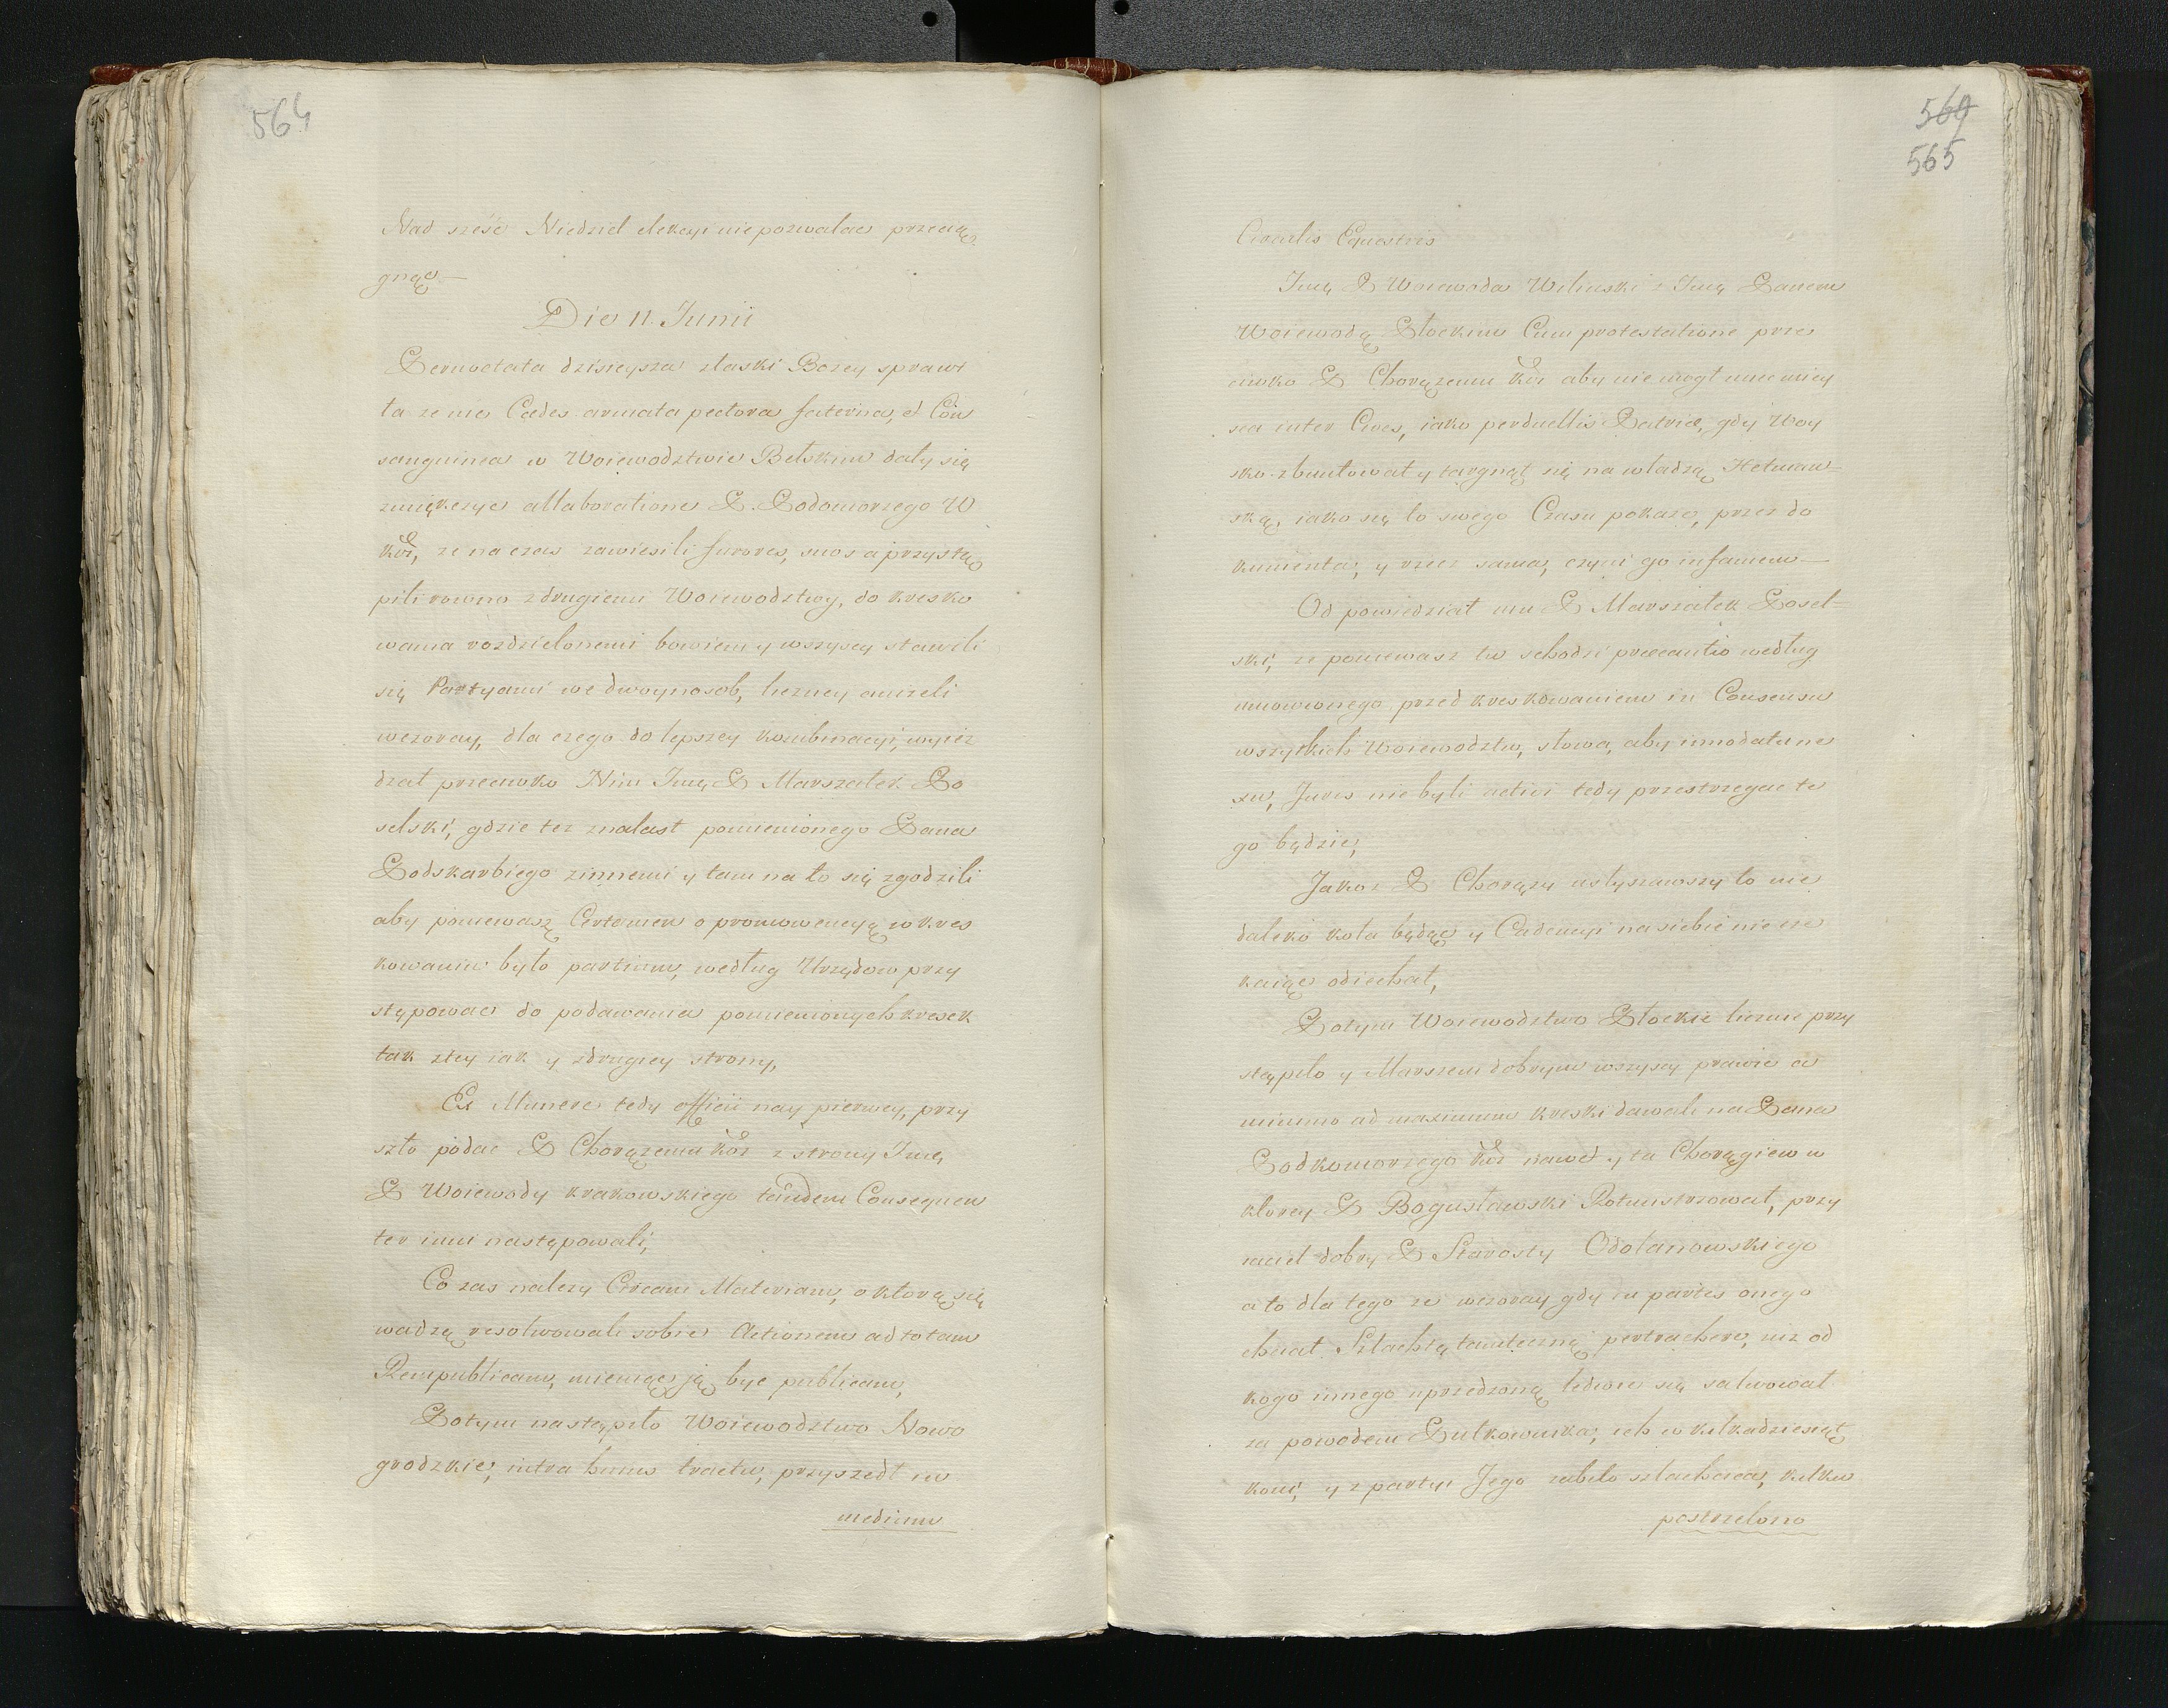 564
Nad sześć Niedziel elekcyi nie pozwalac przecią
gnąc —
Die 11. Junii
Pernoctata dzisieysza z łaski Bozey sprawi
ła ze ine Cædes armata pectora faterna, et Con
sanguinea w Woiewodztwie Bełskim dały się
zmiękczyc allaboratione P. Podomorzego W
Kor, ze na czas zawiesili furores, suos a przystą
pili rowno z drugiemi Woiewodztwy, do kresko
wania rozdzielonemi bowiem y wszyscy stawili
się Partyami we dwoynosob, liczniey anizeli
wczoray, dla czego do lepszey kombinacyi, wyiez
dzał przeciwko Nim Jmę P Marszałek Po
selski, gdzie tez znalasł pomienionego Pana
Podskarbiego z innemi y tam na to się zgodzili
aby poniewasz Certamen o promowencyą w kres
kowaniu było partium, według Urzędow przy
stępowac do podawania pomienionych kresek
tak z tey iak y z drugiey strony,
Ex Munere tedy officii nay pierwey, przy
szło podac P Chorązemu Kor z strony Jmę
P Woiewody krakowskiego tandem Consequen
ter inni następowali,
Co zas nalezy Circam Materiam, o ktorą się
wadzą resolwowali sobie Actionem ad totam
Rempublicam, mieniąc ją byc publicam,
Potym nastąpiło Woiewodztwo Nowo
grodzkie, intra hunc tractu, przyszedł in
medium
569
565
Circulis Equestris
Jmę P Woiewoda Wilenski z Jmę Panem
Woiewodą Płockim Cum protestatione prze
ciwko P Chorązemu Kor aby nie mogł miec miey
sca inter Cives, iako perduellis Patriæ, gdy Woy
sko zbuntował y targnął się na władzą Hetman=
ską, iako się to swego Czasu pokaze, przez do
kumenta, y rzecz sama, czyni go infamem —
Od powiedział mu P Marszałek Posel=
ski, ze poniewasz tu schodzi præcautio według
umowionego przed kreskowaniem in Consensu
wszytkich Woiewodztw, słowa, aby innodati ne
xu, Juris nie byli activi tedy przestrzegac te
go będzie,
Jakoz P Chorązy usłyszawszy to nie
daleko koła będąc y Cadencyi na siebie nie cze
kaiąc odiechał,
Potym Woiewodztwo Płockie licznie przy
stąpiło y Marszem dobrym wszyscy prawie a
minimo ad maximum kreski dawali na Pana
Podkomorzego Kor nawet y ta Chorągiew w
ktorey P Bogusławski Rotmistrzował, przy
iaciel dobry P Starosty Odolanowskiego
a to dla tego ze wczoray gdy in partes onego
chciał Szlachtę tamteczną pertrachere, niz od
kogo innego uprzedzoną ledwie się salwował
za powodem Pułkownika, ich w kilkadziesiąt
koni, y z partyi Jego zabito szlachcica, kilku
postrzelono